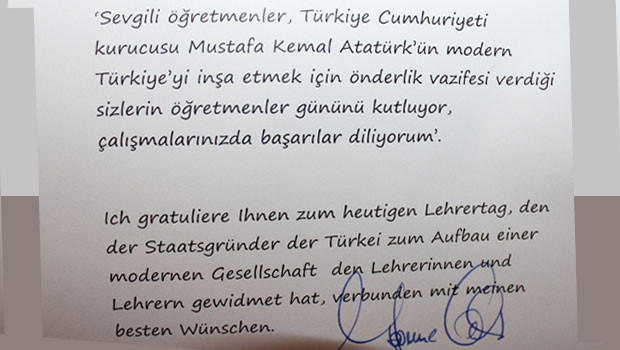 ‘Sevgili öğretmenler, Türkiye Cumhuriyeti
kurucusu Mustafa Kemal Atatürk’ün modern
Türkiye’yi inşa etmek için önderlik vazifesi verdiği
sizlerin öğretmenler gününü kutluyor,
çalışmalarınızda başarılar diliyorum’.
Ich gratuliere Ihnen zum heutigen Lehrertag, den
der Staatsgründer der Türkei zum Aufbau einer
modernen Gesellschaft den Lehrerinnen und
Lehrern gewidmet hat, verbunden mit meinen
besten Wünschen.